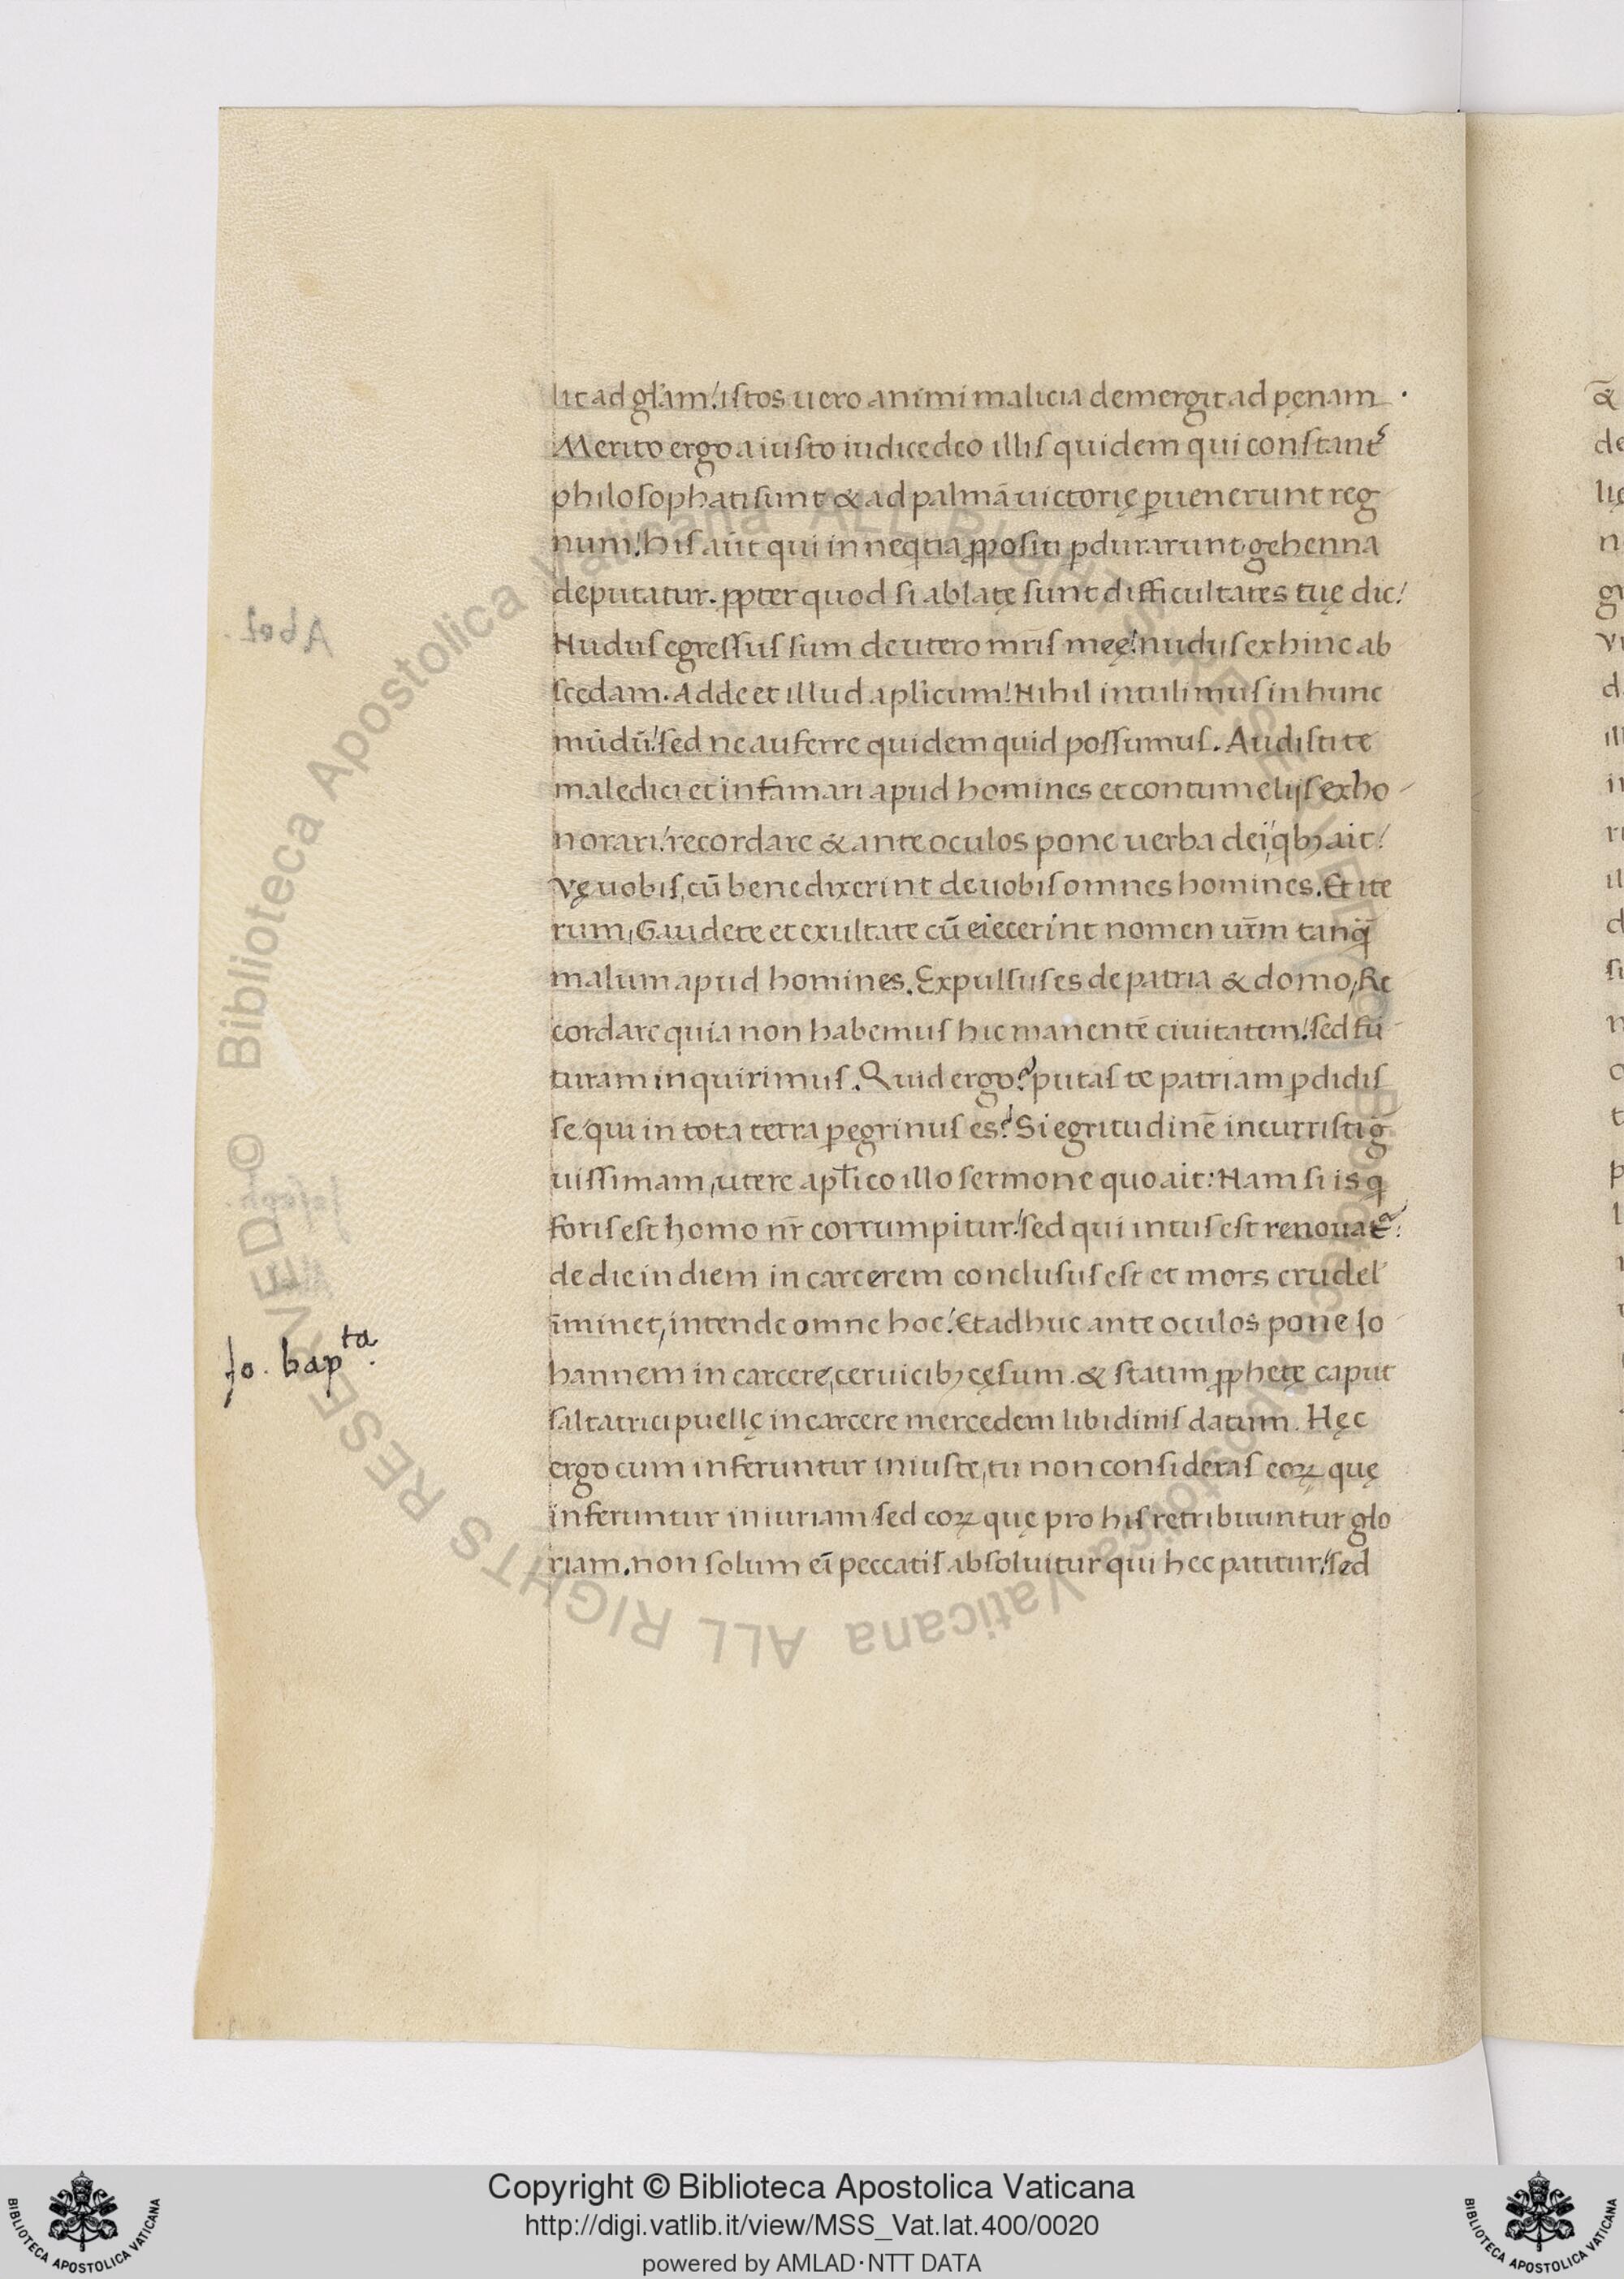 lit ad gl̃am! istos uero animi malicia demergit ad pęnam.
Merito ergo a iusto iudice deo illis quidem qui constant᷒
philosophati sunt & ad palmā uictorię ꝑuenerunt reg
num! his aũt qui in neq̇tia ꝓpositi ꝑdurarunt gehenna
deputatur. ꝓpter quod si ablatę sunt difficultates tuę dic!
Nudus egressus sum de utero mr̃is meę! nudus ex hinc ab
scedam. Adde et illud aplicum! Nihil intulimus in hunc
mūdū! sed ne auferre quidem quid possumus. Audisti te
maledici et infamari apud homines et contumelijs exho
norari! recordare & ante oculos pone uerba dei, qbꝫ ait!
Vę uobis, cū benedixerint de uobis omnes homines. Et ite
rum, Gaudete et exultate cū eiecerint nomen ur̃m tanq̃
malum apud homines. Expulsus es de patria & domo, Re
cordare quia non habemus hic manentē ciuitatem! sed fu
turam inquirimus. Quid ergo? putas te patriam ꝑdidis
se qui in tota terra ꝑegrinus es? Si egritudinē incurristi g̃
uissimam, utere apl̃ico illo sermone quo ait: Nam si is q
foris est homo nr̃ corrumpitur! sed qui intus est renouat᷑!
de die in diem in carcerem conclusus est et mors crudel
īminet, intende omne hoc! Et adhuc ante oculos pone Jo
hannem in carcere, ceruicibꝫ cęsum. & statim ꝓphetę caput
saltatrici puellę in carcere mercedem libidinis datum. Hęc
ergo cum inferuntur iniuste, tu non consideras eoꝝ quę
inferuntur iniuriam sed eoꝝ quę pro his retribuuntur glo
riam. non solum eī peccatis absoluitur qui hec patitur! sed
Jo. bap^ta.
Copyright © Biblioteca Apostolica Vaticana
http://digi.vatlib.it/view/MSS_Vat.lat.400/0020
powered by AMLAD·NTT DATA
BIBLIOTECA APOSTOLICA VATICANA
BIBLIOTECA APOSTOLICA VATICANA